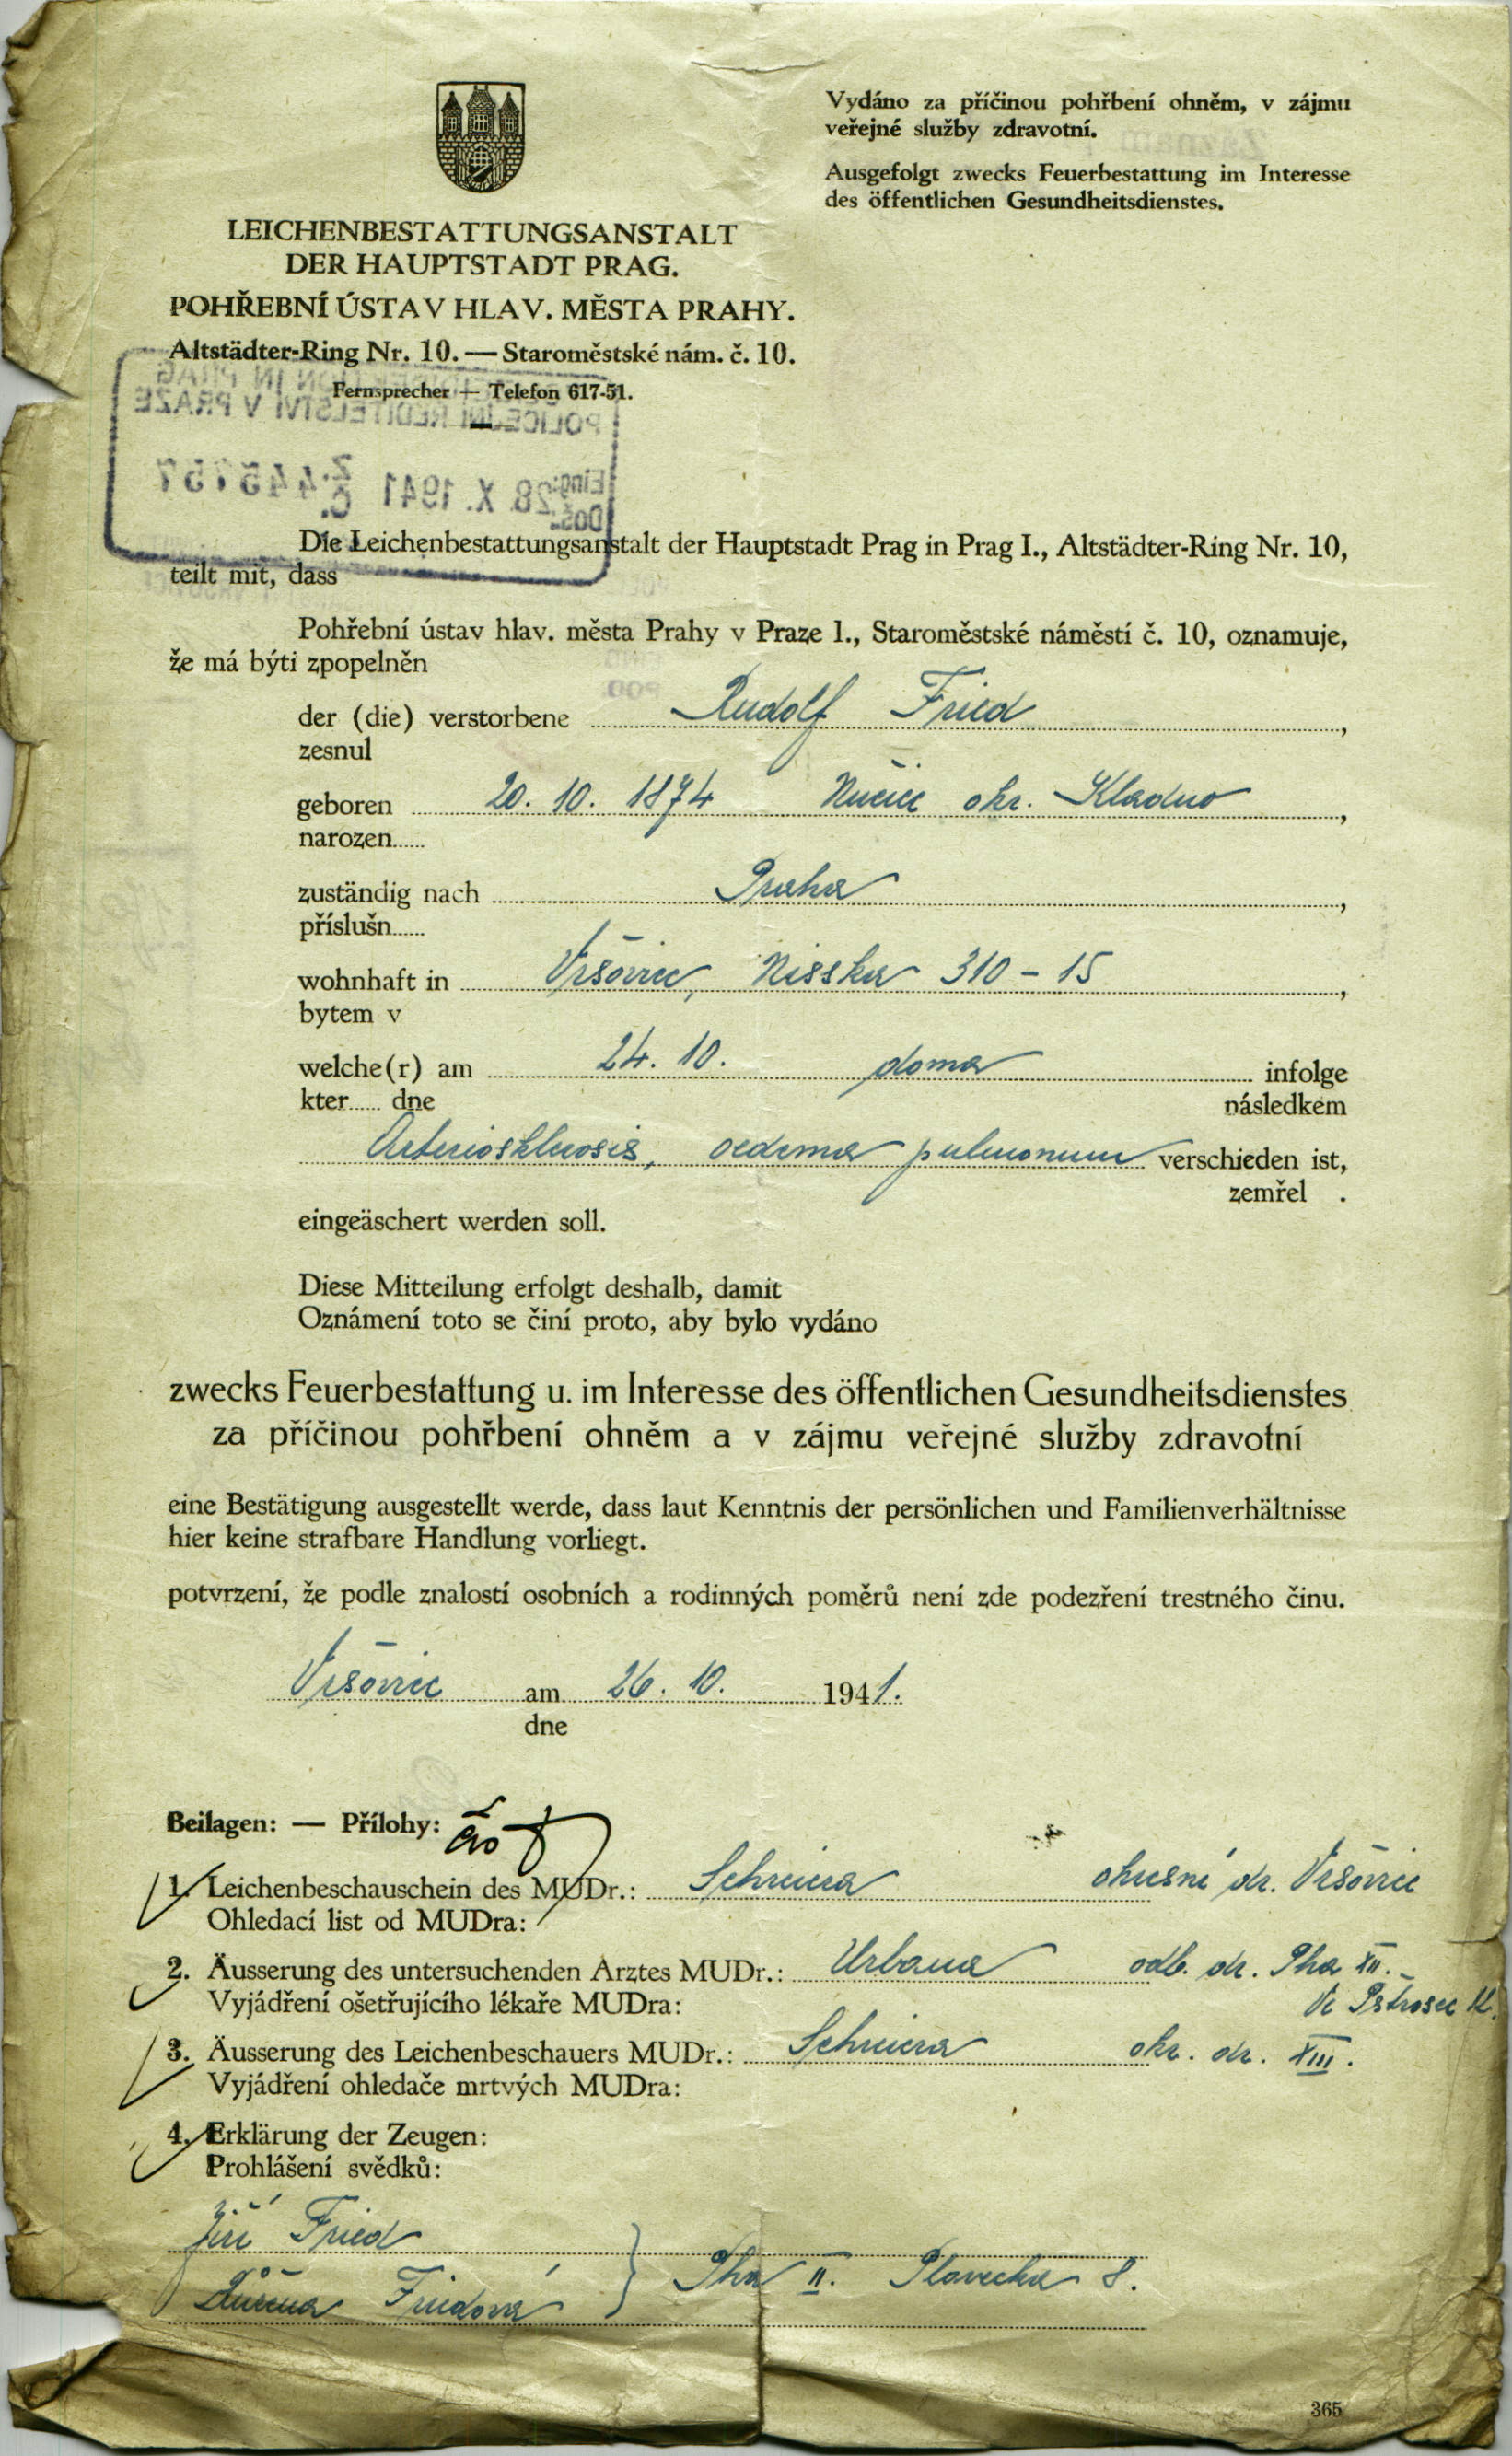 Vydáno za příčinou pohřbení ohněm, v zájmu
veřejné služby zdravotní.
Ausgefolgt zwecks Feuerbestattung im Interesse
des öffentlichen Gesundheitsdienstes.
LEICHENBESTATTUNGSANSTALT
DER HAUPTSTADT PRAG.
POHŘEBNÍ ÚSTAV HLAV. MĚSTA PRAHY.
Altstädter-Ring Nr. 10. — Staroměstské nám. č. 10.
Fernsprecher — Telefon 617-51.
POLICEJNÍ ŘEDITELSTVÍ V PRAZE
Eing: 28. X. 1941 Z. 445757
Došlo Č.
Die Leichenbestattungsanstalt der Hauptstadt Prag in Prag I., Altstädter-Ring Nr. 10,
teilt mit, dass
Pohřební ústav hlav. města Prahy v Praze I., Staroměstské náměstí č. 10, oznamuje,
že má býti zpopelněn
der (die) verstorbene Rudolf Fried,
zesnul
geboren 20. 10. 1874 Nučice okr. Kladno,
narozen......
zuständig nach Praha,
příslušn......
wohnhaft in Vršovice, Nisska 310 - 15,
bytem v
welche(r) am 24. 10. doma infolge
kter..... dne následkem
Arteriosklerosis, oedema pulmonum verschieden ist,
zemřel .
eingeäschert werden soll.
Diese Mitteilung erfolgt deshalb, damit
Oznámení toto se činí proto, aby bylo vydáno
zwecks Feuerbestattung u. im Interesse des öffentlichen Gesundheitsdienstes
za příčinou pohřbení ohněm a v zájmu veřejné služby zdravotní
eine Bestätigung ausgestellt werde, dass laut Kenntnis der persönlichen und Familienverhältnisse
hier keine strafbare Handlung vorliegt.
potvrzení, že podle znalostí osobních a rodinných poměrů není zde podezření trestného činu.
Vršovice am 26. 10. 1941.
dne
Beilagen: — Přílohy:
1. Leichenbeschauschein des MUDr.: Schreiera okresní dr. Vršovice
Ohledací list od MUDra:
2. Äusserung des untersuchenden Arztes MUDr.: Urbana odb. dr. Pha XII.
Vyjádření ošetřujícího lékaře MUDra: Ve Pštrosce
3. Äusserung des Leichenbeschauers MUDr.: Schreiera okr. dr. XIII.
Vyjádření ohledače mrtvých MUDra:
4. Erklärung der Zeugen:
Prohlášení svědků:
Jiří Fried
Růžena Friedová } Pha II. Plavecka 8.
365